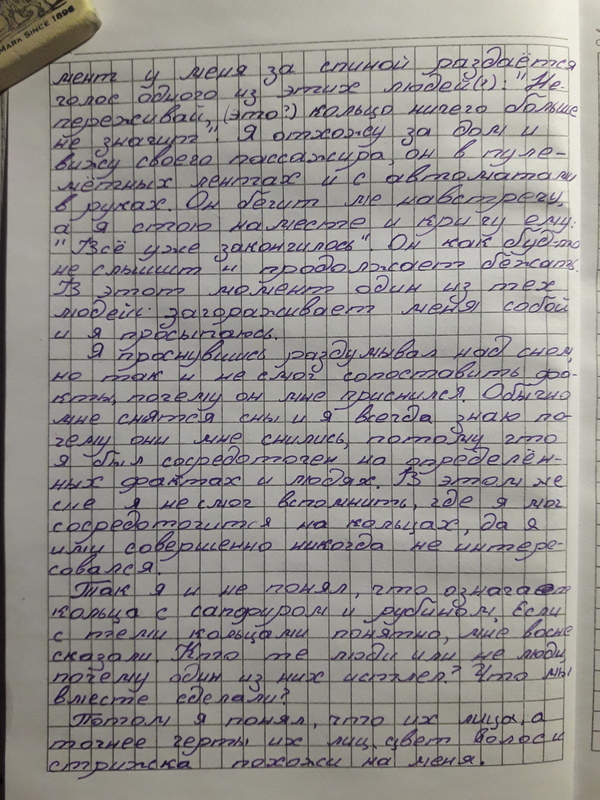 MARK SINCE 1896
мент у меня за спиной раздаётся
голос одного из этих людей(?): "Не-
переживай, (это?) кольцо ничего больше
не значит". Я отхожу за дом и
вижу своего пассажира, он в пуле-
мётных лентах и с автоматами
в руках. Он бегит мне навстречу,
а я стою наместе и кричу ему:
"Всё уже закончилось". Он как будто
не слышит и продолжает бежать.
В этот момент один из тех
людей: загораживает меня собой
и я просыпаюсь.
Я проснувшись раздумывал над сном,
но так и не смог сопоставить фа-
кты, почему он мне приснился. Обычно
мне снятся сны и я всегда знаю по-
чему они мне снились, потому что
я был сосредоточен на определён-
ных фактах и людях. В этом же
сне я не смог вспомнить, где я мог
сосредоточится на кольцах, да я
ими совершенно никогда не интере-
совался.
Так я и не понял, что означает
кольца с сапфиром и рубином. Если
с теми кольцами понятно, мне восне
сказали. Кто те люди или не люди,
почему один из них истлел? Что мы
вместе сделали?
Потом я понял, что их лица, а
точнее черты их лиц, цвет волос и
стрижка похожи на меня.